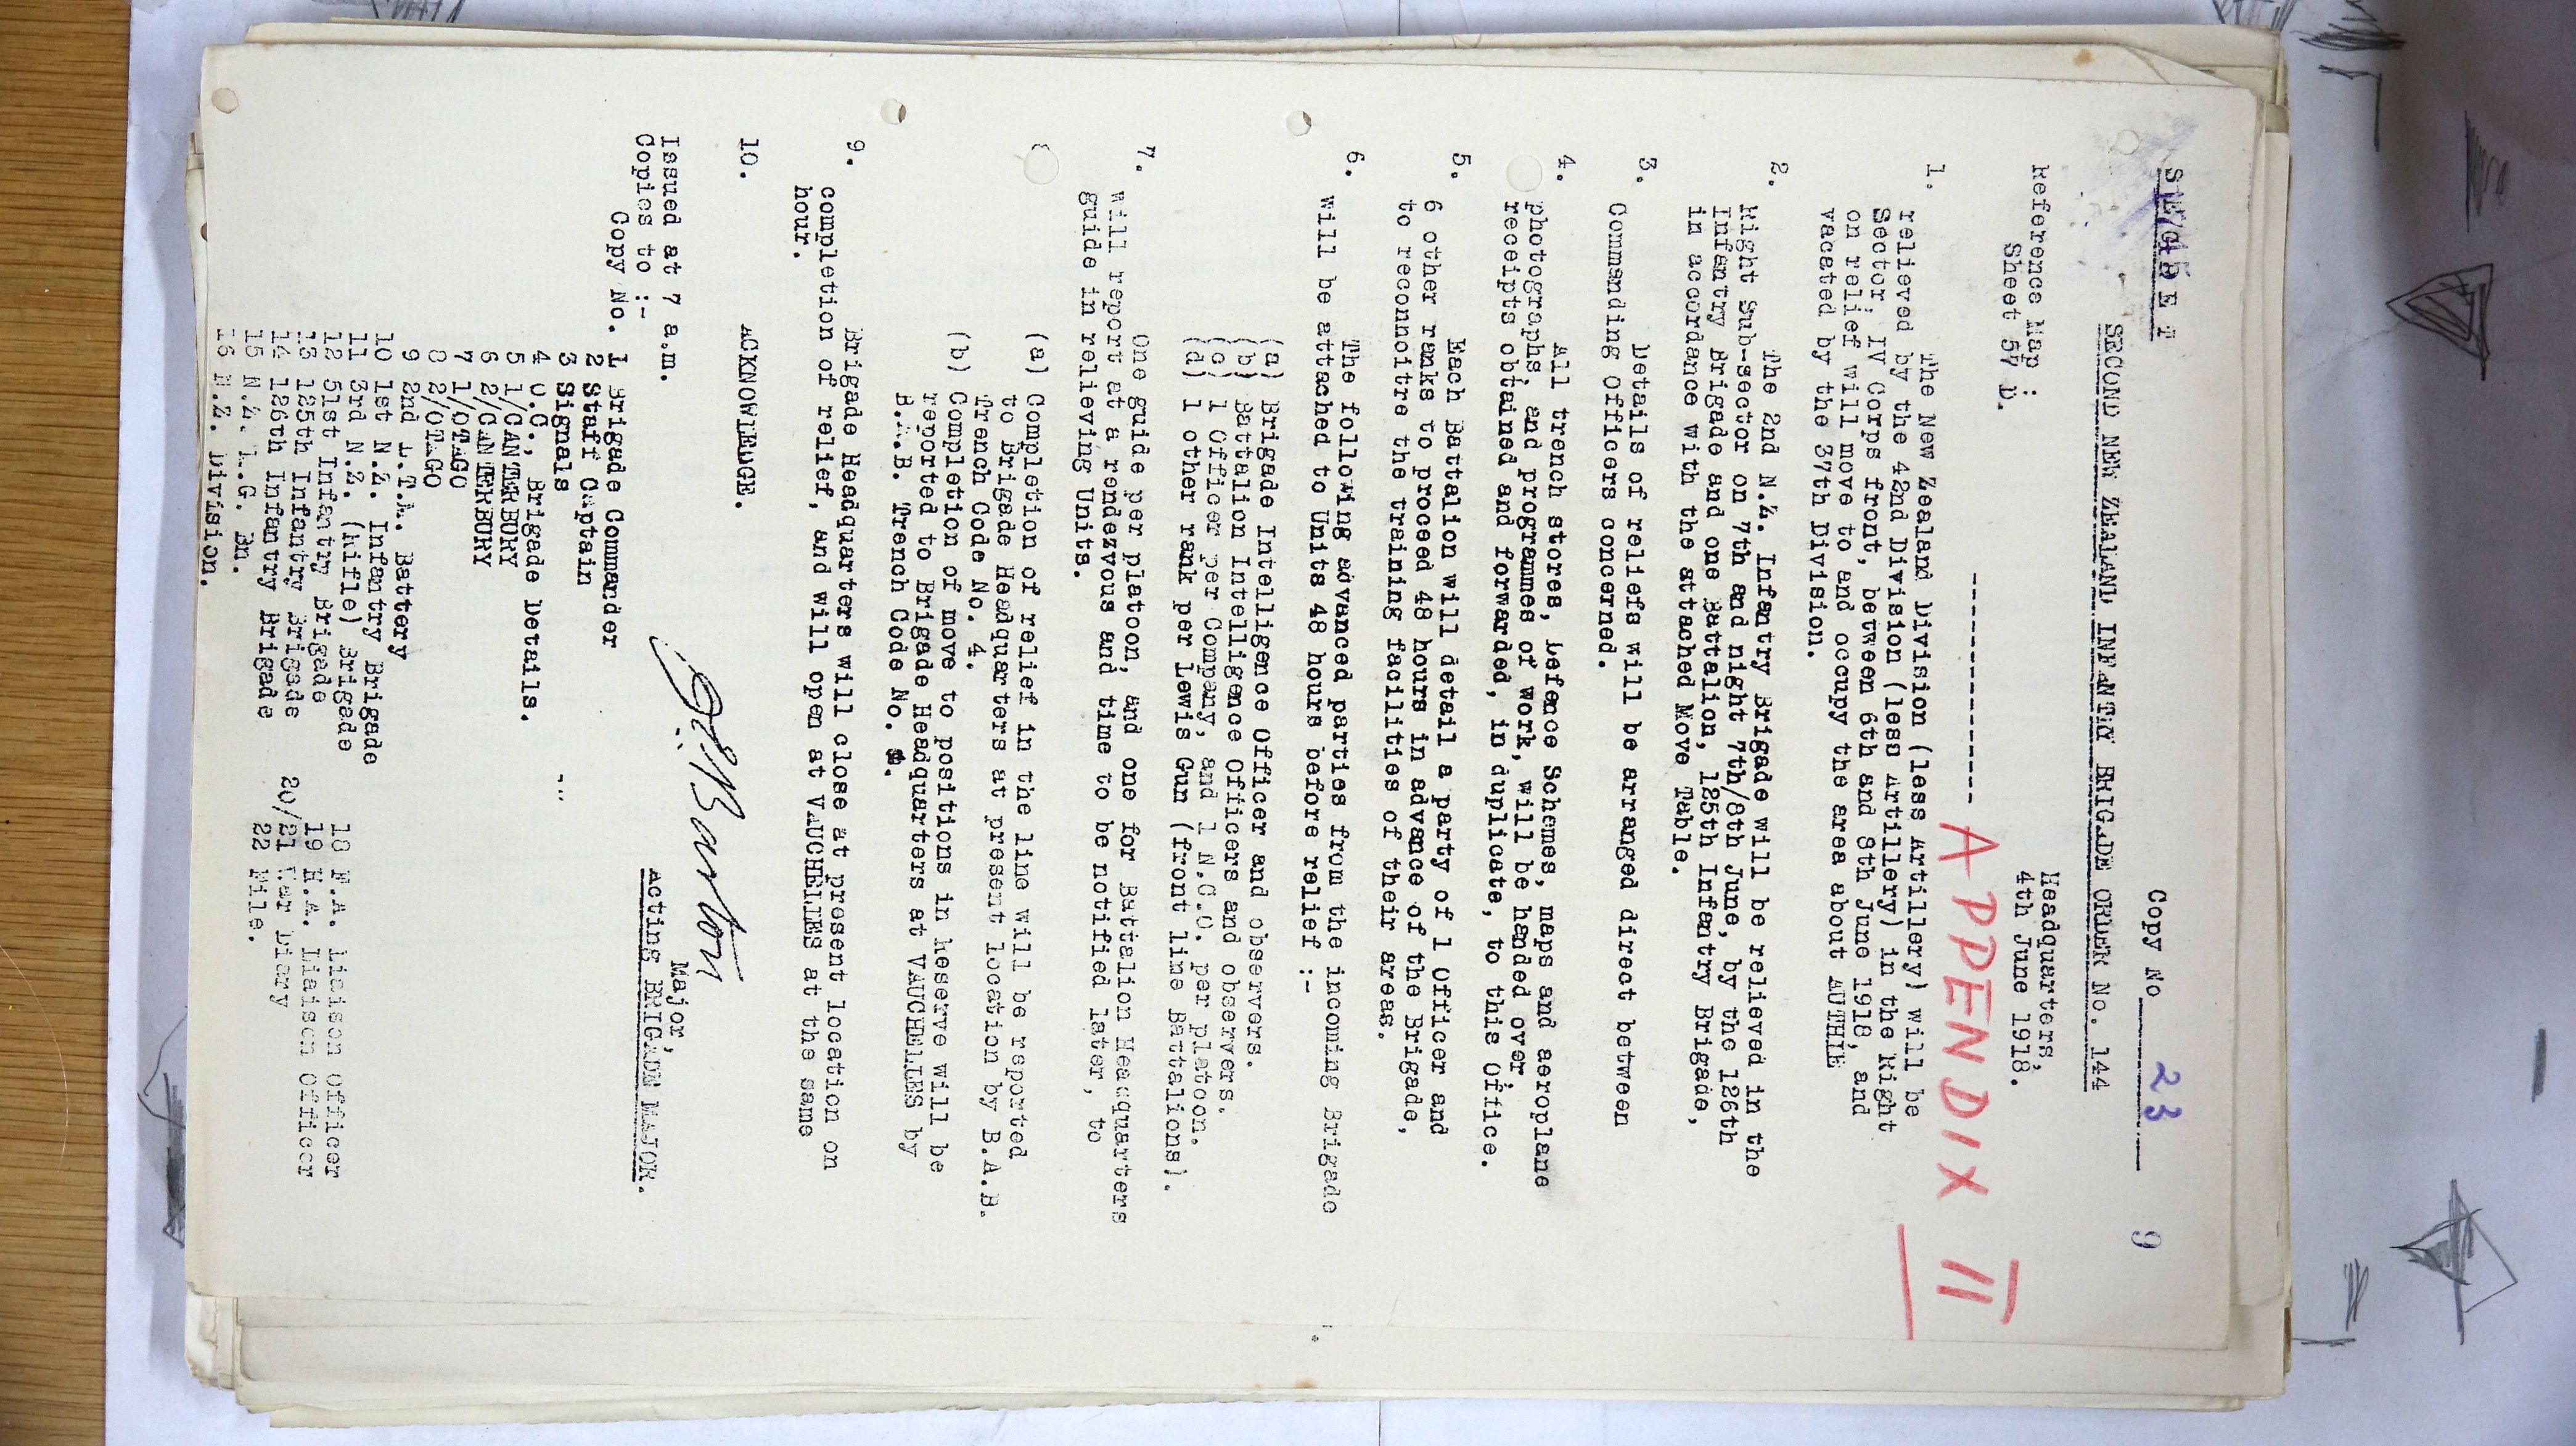 Copy No 23
9
SECRET
SECOND NEW ZEALAND INFANTRY BRIGADE ORDER No. 144
Headquarters,
4th June 1918.
Reference Map :
Sheet 57 D.
APPENDIX II
1. The New Zealand Division (less Artillery) will be
relieved by the 42nd Division (less Artillery) in the Right
Sector, IV Corps front, between 6th and 8th June 1918, and
on relief will move to and occupy the area about AUTHIE
vacated by the 37th Division.
2. The 2nd N.Z. Infantry Brigade will be relieved in the
Right Sub-sector on 7th and night 7th/8th June, by the 126th
Infantry Brigade and one Battalion, 125th Infantry Brigade,
in accordance with the attached Move Table.
3. Details of reliefs will be arranged direct between
Commanding Officers concerned.
4. All trench stores, Defence Schemes, maps and aeroplane
photographs, and programmes of work, will be handed over,
receipts obtained and forwarded, in duplicate, to this Office.
5. Each Battalion will detail a party of 1 Officer and
6 other ranks to proceed 48 hours in advance of the Brigade,
to reconnoitre the training facilities of their areas.
6. The following advanced parties from the incoming Brigade
will be attached to Units 48 hours before relief :-
(a) Brigade Intelligence Officer and observers.
(b) Battalion Intelligence Officers and observers.
(c) 1 Officer per Company, and 1 N.C.O. per platoon.
(d) 1 other rank per Lewis Gun (front line Battalions).
7. One guide per platoon, and one for Battalion Headquarters
will report at a rendezvous and time to be notified later, to
guide in relieving Units.
(a) Completion of relief in the line will be reported
to Brigade Headquarters at present location by B.A.B.
Trench Code No. 4.
(b) Completion of move to positions in Reserve will be
reported to Brigade Headquarters at VAUCHELLES by
B.A.B. Trench Code No.
9. Brigade Headquarters will close at present location on
completion of relief, and will open at VAUCHELLES at the same
hour.
10. ACKNOWLEDGE.
Major,
Acting BRIGADE MAJOR.
Issued at 7 a.m.
Copies to :-
Copy No. 1 Brigade Commander
2 Staff Captain
3 Signals
4 O.C., Brigade Details.
5 1/CANTERBURY
6 2/CANTERBURY
7 1/OTAGO
8 2/OTAGO
9 2nd L.T.M. Battery
10 1st N.Z. Infantry Brigade
11 3rd N.Z. (Rifle) Brigade
12 51st Infantry Brigade
13 125th Infantry Brigade
14 126th Infantry Brigade
15 N.Z. M.G. Bn.
16 N.Z. Division.
18 F.A. Liaison Officer
19 H.A. Liaison Officer
20/21 War Diary
22 File.